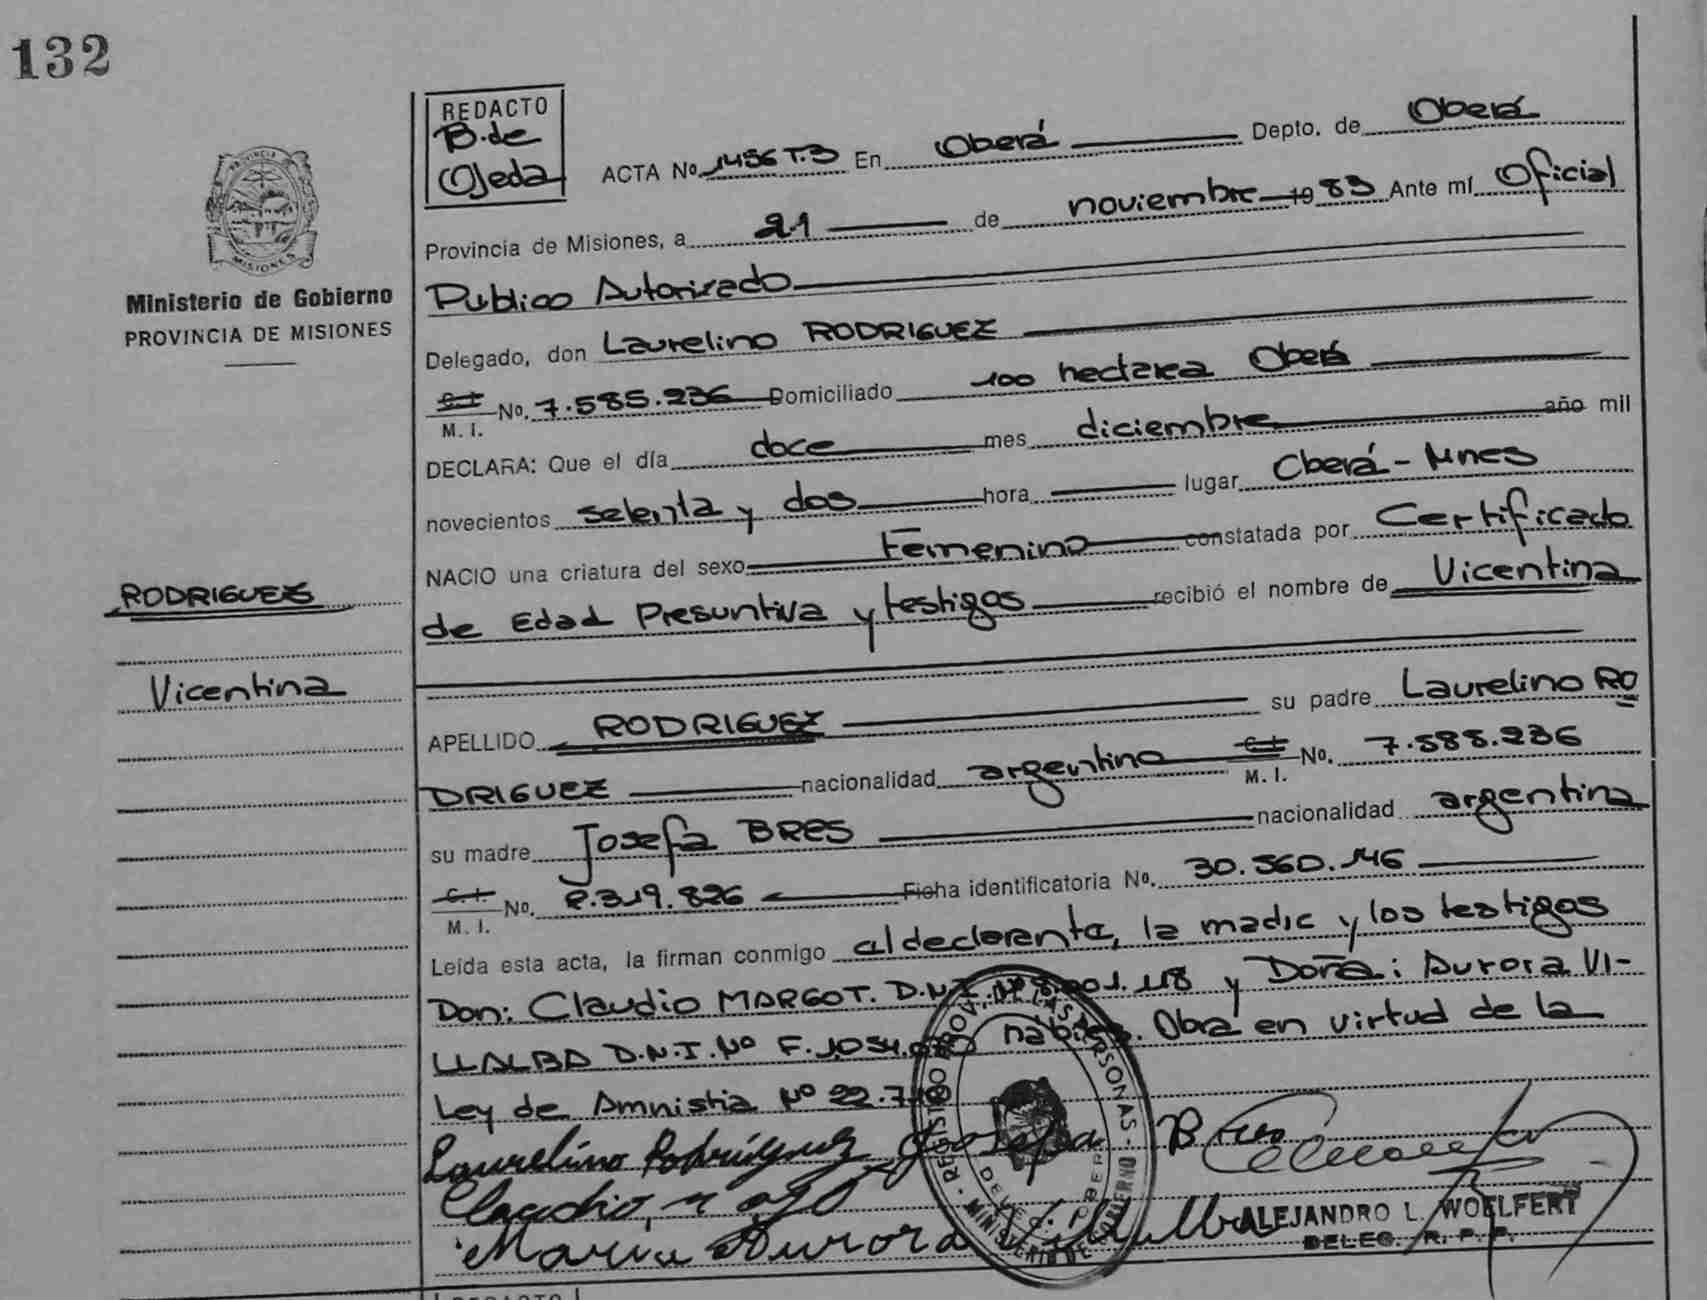 132
REDACTO
B. de
Ojeda
ACTA No. 1456 T.3 En Oberá Depto. de Oberá
Provincia de Misiones, a 21 de noviembre 1983 Ante mí Oficial
Publico Autorizado
Delegado, don Laurelino RODRIGUEZ
C.I. M. I. No. 7.585.236 Domiciliado 100 hectarea Oberá
DECLARA: Que el día doce mes diciembre año mil
novecientos setenta y dos hora lugar Oberá - Mnes
NACIO una criatura del sexo Femenino constatada por Certificado
de Edad Presuntiva y testigos recibió el nombre de Vicentina
APELLIDO RODRIGUEZ su padre Laurelino RO
DRIGUEZ nacionalidad argentino C.I. M. I. No. 7.585.236
su madre Josefa BRES nacionalidad argentina
C.I. M. I. No. 2.319.826 Ficha identificatoria No. 30.560.146
Leída esta acta, la firman conmigo el declarante, la madre y los testigos
Don: Claudio MARGOT. D.N.I. Nº 8.001.118 y Doña: Aurora VI-
LLALBA D.N.I. Nº F. 1.054. habiles. Obra en virtud de la
Ley de Amnistia Nº 22.7
Laurelino Rodríguez Josefa Bres
Claudio
Maria Aurora Villalba
ALEJANDRO L. WOELFERT
DELEG. R. P. P.
REGISTRO PROV. DE LAS PERSONAS
MINISTERIO DE GOBIERNO
PROVINCIA
MISIONES
Ministerio de Gobierno
PROVINCIA DE MISIONES
RODRIGUEZ
Vicentina
REDACTO